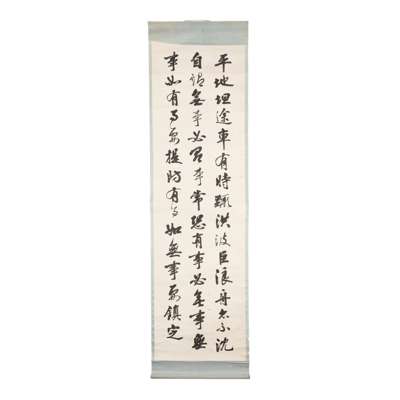 平地坦途車有時顛洪波巨浪舟亦不沈
自謂無事必有事常恐有事必無事無
事如有事要提防有事如無事要鎮定